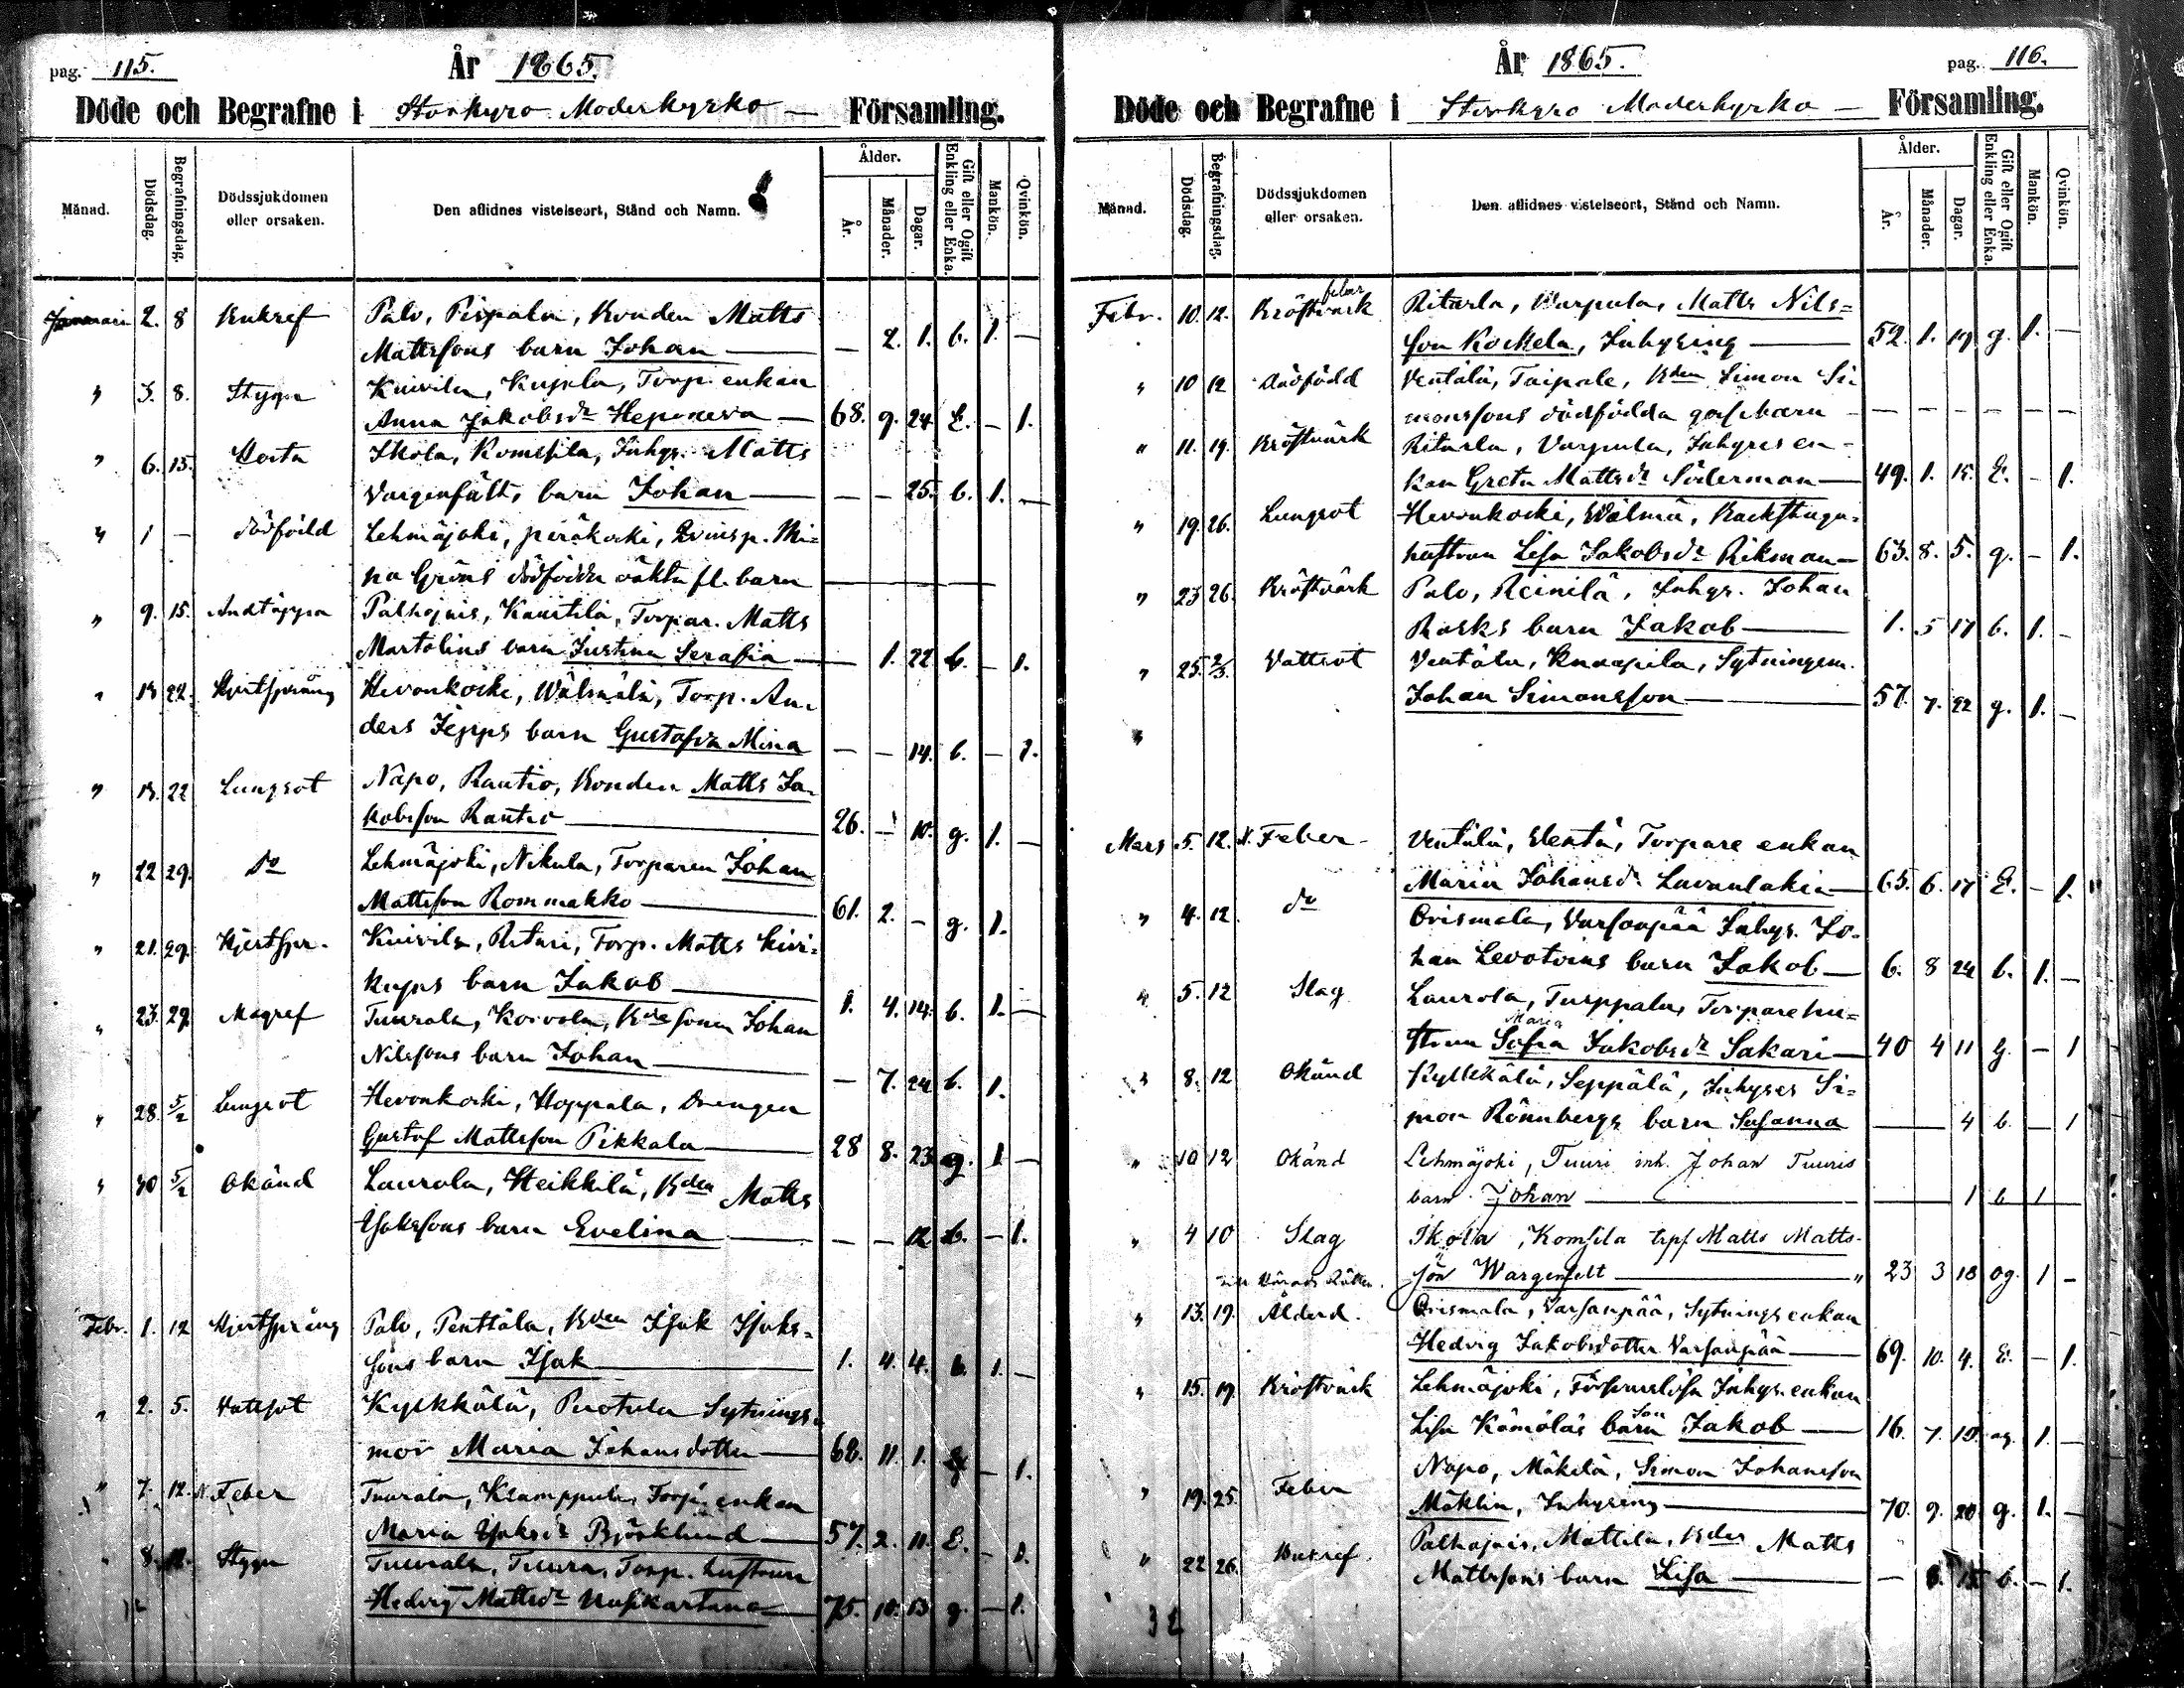 pag. 115.
År 1865.
Döde och Begrafne i Storkyro Moderkyrko — Församling.
Månad. Dödsdag. Begrafningsdag. Dödssjukdomen eller orsaken. Den aflidnes vistelseort, Stånd och Namn. Ålder. År. Månader. Dagar. Gift eller Ogift Enkling eller Enka. Mankön. Qvinkön.
Januari 2. 8 Bukref Palo, Pispala, Bonden Matts
Mattssons barn Johan — — 2. 1. b. 1. —
" 3. 8. Stygn Kuivila, Kujala, Torp. enkan
Anna Jakobsdr Heponeva — 68. 9. 24 E. — 1.
" 6. 15. Hosta Ikola, Komsila, Inhys. Matts
Vargenfälts barn Johan — — — 25. b. 1. —
" 1 — dödfödd Lehmäjoki, peräkoski, Qvinsp. Mi-
na Gröns dödfödda oäkta fl. barn
" 9. 15. Andtäppa Palhojais, Kaurtila, Torpar. Matts
Martolins barn Justina Serafia — — 1. 22 b. — 1.
" 22. Hjertsprång Hevonkoski, Wälmälä, Torp. An-
ders Jepps barn Gustafva Mina — — 14. b. — 1.
" 22 Lungsot Napo, Rautio, Bonden Matts Ja-
kobsson Rautio — 26. — 10. g. 1. —
" 22 29. do Lehmäjoki, Nikula, Torparen Johan
Mattsson Rommakko — 61. 2. — g. 1.
" 21. 29. Hjertspr. Kuivila, Rituri, Torp. Matts Kivi-
kujas barn Jakob — 1. 4. 14. b. 1. —
" 23. 29. Magref Tuurala, Koivola, Bde sonen Johan
Nilssons barn Johan — — 7. 24 b. 1.
" 28. 5/2 Lungsot Hevonkoski, Hoppala, Drengen
Gustaf Mattsson Pikkala — 28 8. 23 g. 1 —
" 30 5/2 Okänd Laurola, Heikkilä, Bden Matts
Isakssons barn Evelina — — — 12 b. — 1.
Febr. 1. 12 Hjertsprång Palo, Penttala, Bden Isak Isaks-
sons barn Isak — 1. 4. 4. b. 1. —
" 2. 5. Vattsot Kylkkälä, Perttula Sytnings-
mor Maria Johansdotter — 68. 11. 1. — 1.
" 7. 12. N. Feber Tuurala, Kramppula, Torp. enkan
Maria Isaksdr Björklund — 57. 2. 11. E. — 1.
" 8. 12. Stygn Tuurala, Tuura, Torp. hustrun
Hedvig Mattsdr Uusikartano — 75. 10. 13 g. — 1.
pag. 116.
År 1865.
Döde och Begrafne i Storkyro Moderkyrko — Församling.
Månad. Dödsdag. Begrafningsdag. Dödssjukdomen eller orsaken. Den aflidnes vistelseort, Stånd och Namn. Ålder. År. Månader. Dagar. Gift eller Ogift Enkling eller Enka. Mankön. Qvinkön.
feber
Febr. 10. 12. Bröstvärk Ritarla, Warpula, Matts Nils-
son Kockela, Inhysing — 52. 1. 19 g. 1. —
" 10 12 dödfödd Ventälä, Taipale, Bden Simon Si-
monssons dödfödda barn — — — — — —
" 11. 19. Bröstvärk Ritarla, Varpula, Inhyses en-
kan Greta Mattsdr Söderman — 49. 1. 15. E. — 1.
" 19. 26. Lungsot Hevonkoski, Wälmä, Backstugu-
hustrun Lisa Jakobsdr Rikman — 63. 8. 5. g. — 1.
" 23 26. Bröstvärk Palo, Reinilä, Inhys. Johan
Rosks barn Jakob — 1. 5 17 b. 1. —
" 25. 2/3. Vattsot Ventälä, Knaapila, Sytningsm.
Johan Simonsson — 57. 7. 22 g. 1. —
"
Mars 5. 12. N. Feber Ventälä, Elentä, Torpare enkan
Maria Johansdr Luvanlakia — 65. 6. 17 E. — 1.
" 4. 12 do Orismala, Varsanpää Inhys. Jo-
han Levotvins barn Jakob — 6. 8 24 b. 1. —
" 5. 12 Slag Laurola, Turppala, Torpare hu-
Maria
strun Sofia Jakobsdr Sakari — 40 4 11 g. — 1
" 8. 12 Okänd Kylkkälä, Seppälä, Inhyses Si-
mon Rönnbergs barn Susanna — 4 b. — 1
" 10 12 Okänd Lehmäjoki, Tuuri inh. Johan Tuuris
barn Johan — 1 b 1
" 4 10 Slag Ikola, Komsila trpf Matts Matts-
son Wargenfelt — " 23 3 18 og. 1 —
" 13. 19. Ålderd. Orismala, Varsanpää, Sytnings enkan
Hedvig Jakobsdotter Varsanpää — 69. 10. 4. E. — 1.
" 15. 19. Bröstvärk Lehmäjoki, Inhys. enkan
son
Lisa Kamölas barn Jakob — 16. 7. 19. og. 1. —
Napo, Mäkelä, Simon Johansson
" 19. 25. Feber Mäklin, Inhysing — 70. 9. 20 g. 1. —
Palhojais, Mattila, Bdes Matts
" 22 26. Bukref. Mattssons barn Lisa — — 15 b. — 1.
32